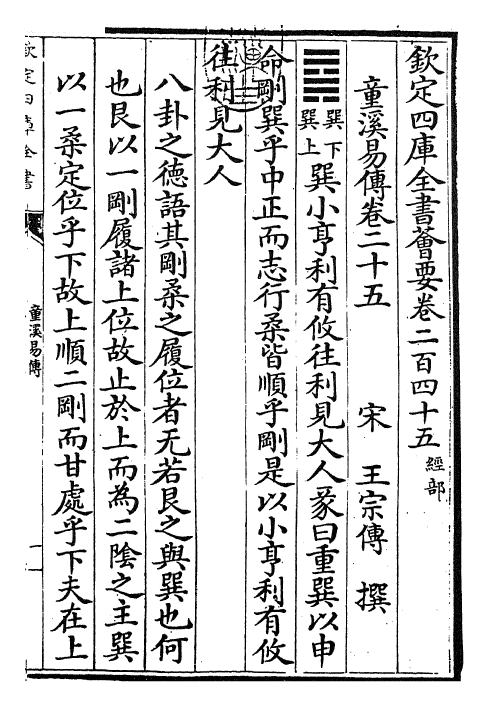 欽定四庫全書薈要卷二百四十五 經部
童溪易傳卷二十五 宋 王宗傳 撰
巽下
巽上
巽小亨利有攸往利見大人彖曰重巽以申
命剛巽乎中正而志行柔皆順乎剛是以小亨利有攸
往利見大人
八卦之德語其剛柔之履位者无若艮之與巽也何
也艮以一剛履諸上位故止於上而為二陰之主巽
以一柔定位乎下故上順二剛而甘處乎下夫在上
欽定四庫全書
童溪易傳
一